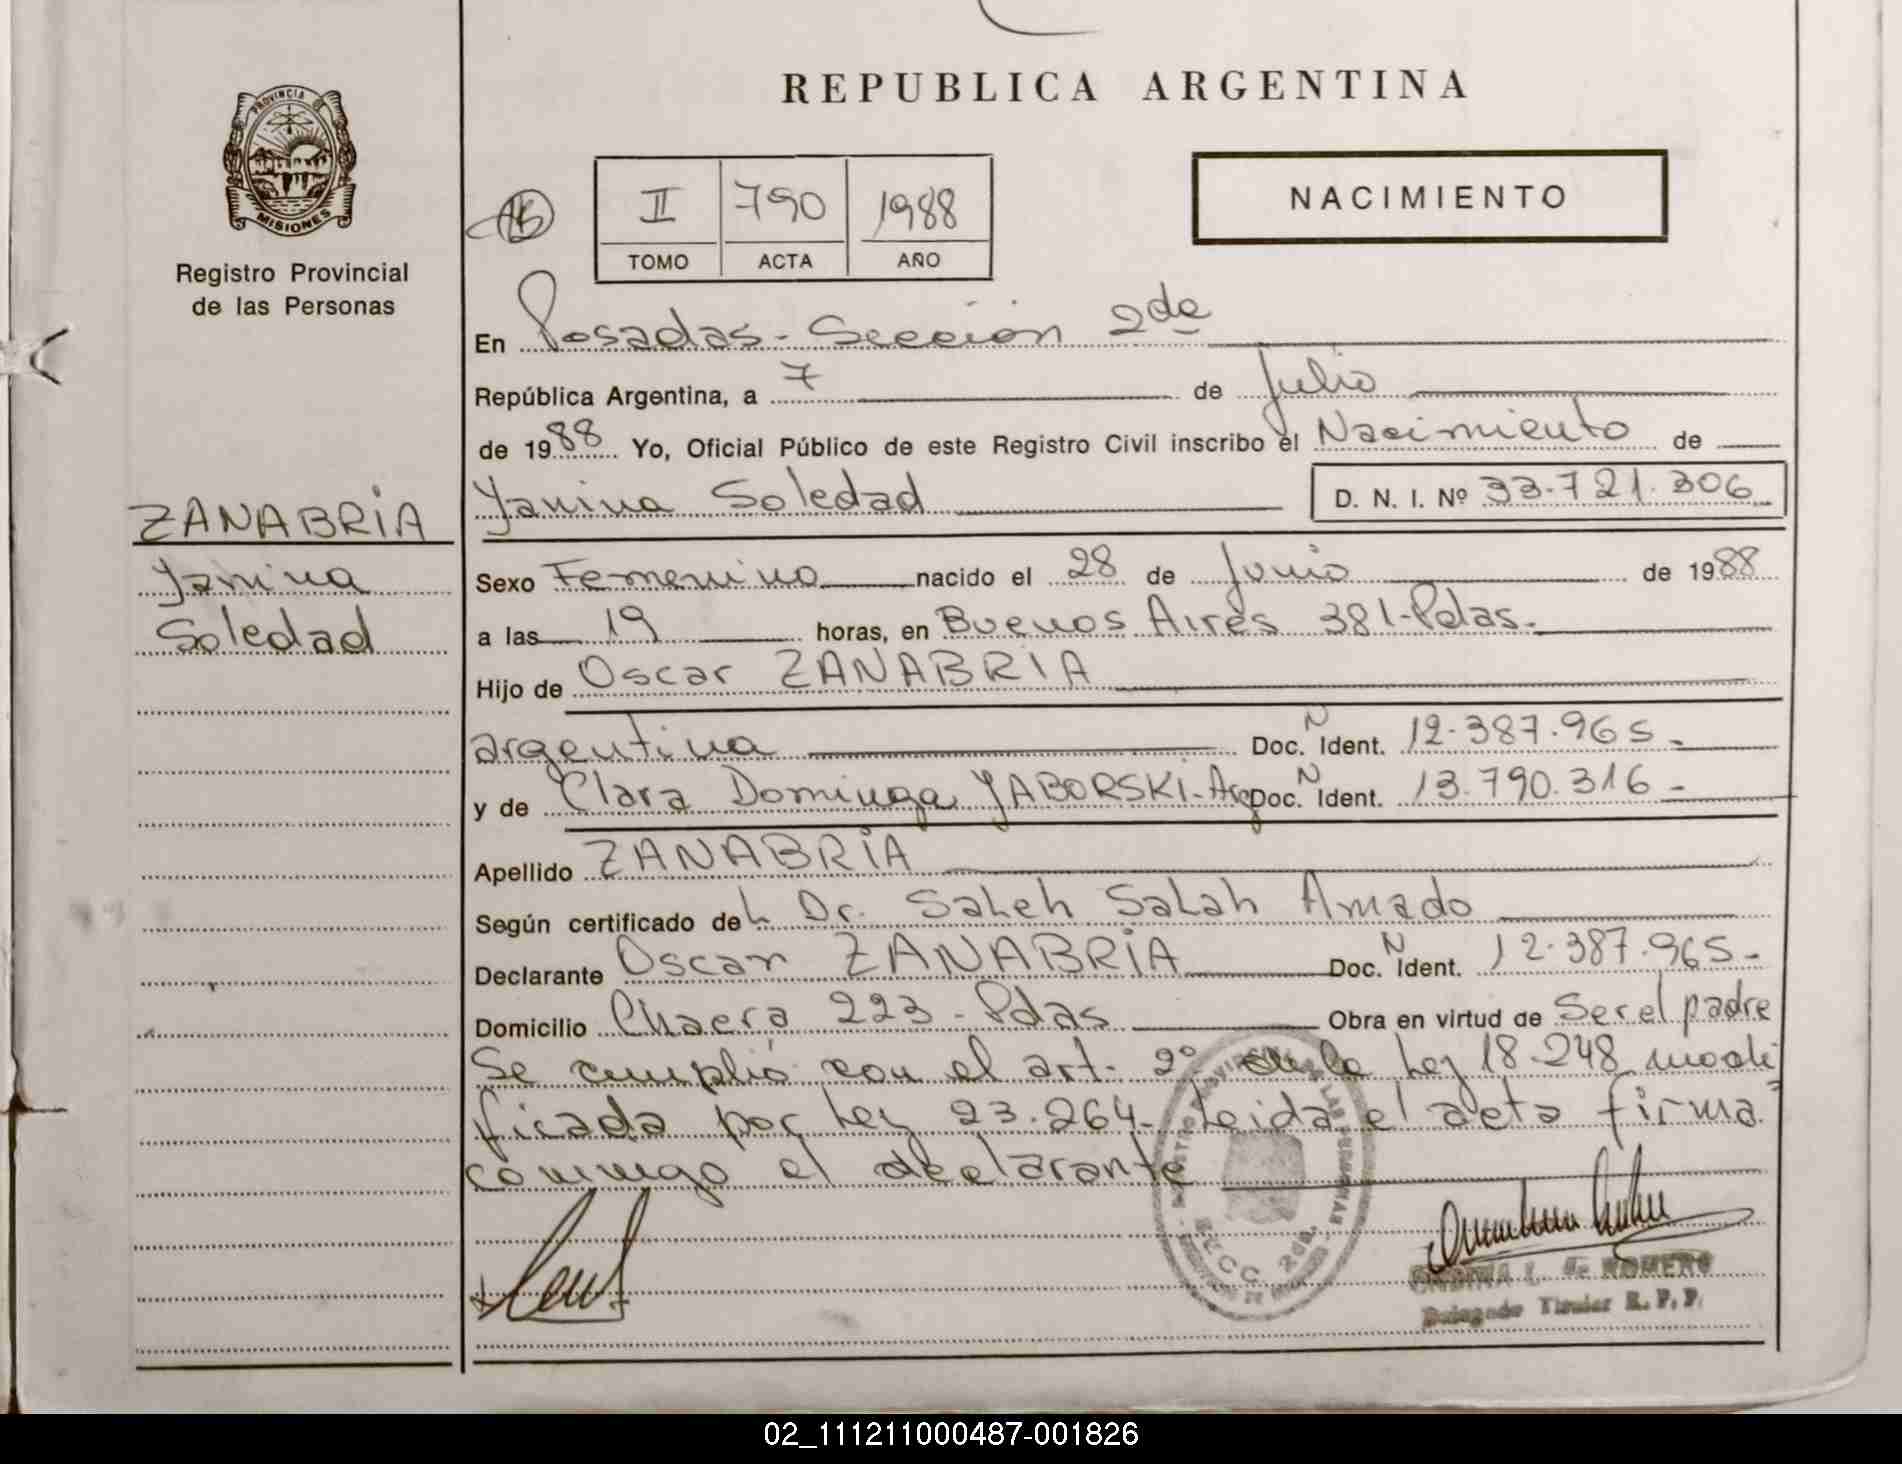 REPUBLICA ARGENTINA
PROVINCIA
MISIONES
Registro Provincial
de las Personas
II 790 1988
TOMO ACTA AÑO
NACIMIENTO
En Posadas - Sección 2da
República Argentina, a 7 de Julio
de 1988 Yo, Oficial Público de este Registro Civil inscribo el Nacimiento de
Yanina Soledad D. N. I. Nº 33.721.306
ZANABRIA
Yanina
Soledad
Sexo Femenino nacido el 28 de Junio de 1988
a las 19 horas, en Buenos Aires 381-Pdas.
Hijo de Oscar ZANABRIA
argentina Doc. N Ident. 12.387.965.-
y de Clara Dominga YABORSKI-Arg Doc. N Ident. 13.790.316.-
Apellido ZANABRIA
Según certificado del Dr. Saleh Salah Amado
Declarante Oscar ZANABRIA Doc. N Ident. 12.387.965.-
Domicilio 223 - Pdas Obra en virtud de Ser el padre
Se cumplió con el art. 2° de la Ley 18.248 modi
ficada por Ley 23.264. Leida el acta firma
conmigo el declarante
SECC. 2da.
L. de ROMERO
Delegado Titular R. P. P.
02_111211000487-001826